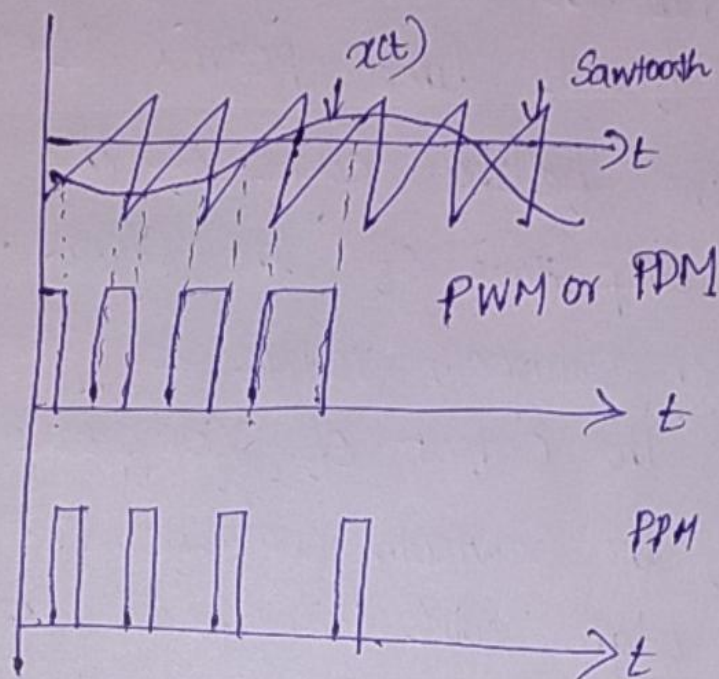 x(t)
Sawtooth
t
PWM or PDM
t
PPM
t